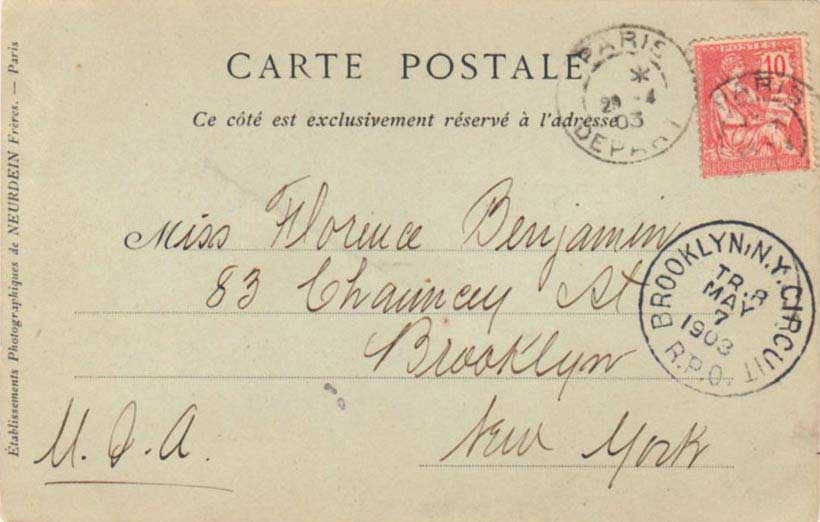 CARTE POSTALE
Ce côté est exclusivement réservé à l'adresse
PARIS
*
29 -4
03
DEPART
POSTES
10
PARIS
Miss Florence Benjamin
83 Chauncey St
Brooklyn
New York
U.S.A.
BROOKLYN, N.Y. CIRCUIT
TR.8
MAY
7
1903
R.P.O.
Établissements Photographiques de NEURDEIN Frères. — Paris